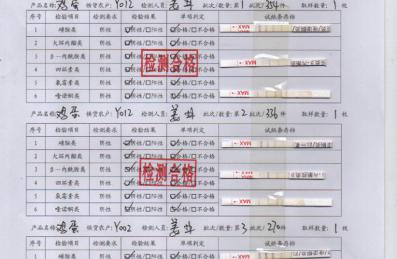 产品名称:鸡蛋 供货农户:Y012 检测人员:姜 批次/数量:第1批次/354件 取样数量:1枚
序号 检验项目 检测要求 检验结果 单项判定 试纸条存档
1 磺胺类 阴性 ☑阴性/□阳性 ☑合格/□不合格
2 大环内酯类 阴性 ☑阴性/□阳性 ☑合格/□不合格
3 β-内酰胺类 阴性 ☑阴性/□阳性 ☑合格/□不合格
4 四环素类 阴性 ☑阴性/□阳性 ☑合格/□不合格
5 氯霉素类 阴性 ☑阴性/□阳性 ☑合格/□不合格
6 喹诺酮类 阴性 ☑阴性/□阳性 ☑合格/□不合格
检测合格
MAX
MAX
产品名称:鸡蛋 供货农户:Y012 检测人员:姜 批次/数量:第2批次/336件 取样数量:1枚
序号 检验项目 检测要求 检验结果 单项判定 试纸条存档
1 磺胺类 阴性 ☑阴性/□阳性 ☑合格/□不合格
2 大环内酯类 阴性 ☑阴性/□阳性 ☑合格/□不合格
3 β-内酰胺类 阴性 ☑阴性/□阳性 ☑合格/□不合格
4 四环素类 阴性 ☑阴性/□阳性 ☑合格/□不合格
5 氯霉素类 阴性 ☑阴性/□阳性 ☑合格/□不合格
6 喹诺酮类 阴性 ☑阴性/□阳性 ☑合格/□不合格
检测合格
MAX
MAX
MAX
产品名称:鸡蛋 供货农户:Y002 检测人员:姜 批次/数量:第3批次/270件 取样数量:1枚
序号 检验项目 检测要求 检验结果 单项判定 试纸条存档
1 磺胺类 阴性 ☑阴性/□阳性 ☑合格/□不合格
MAX